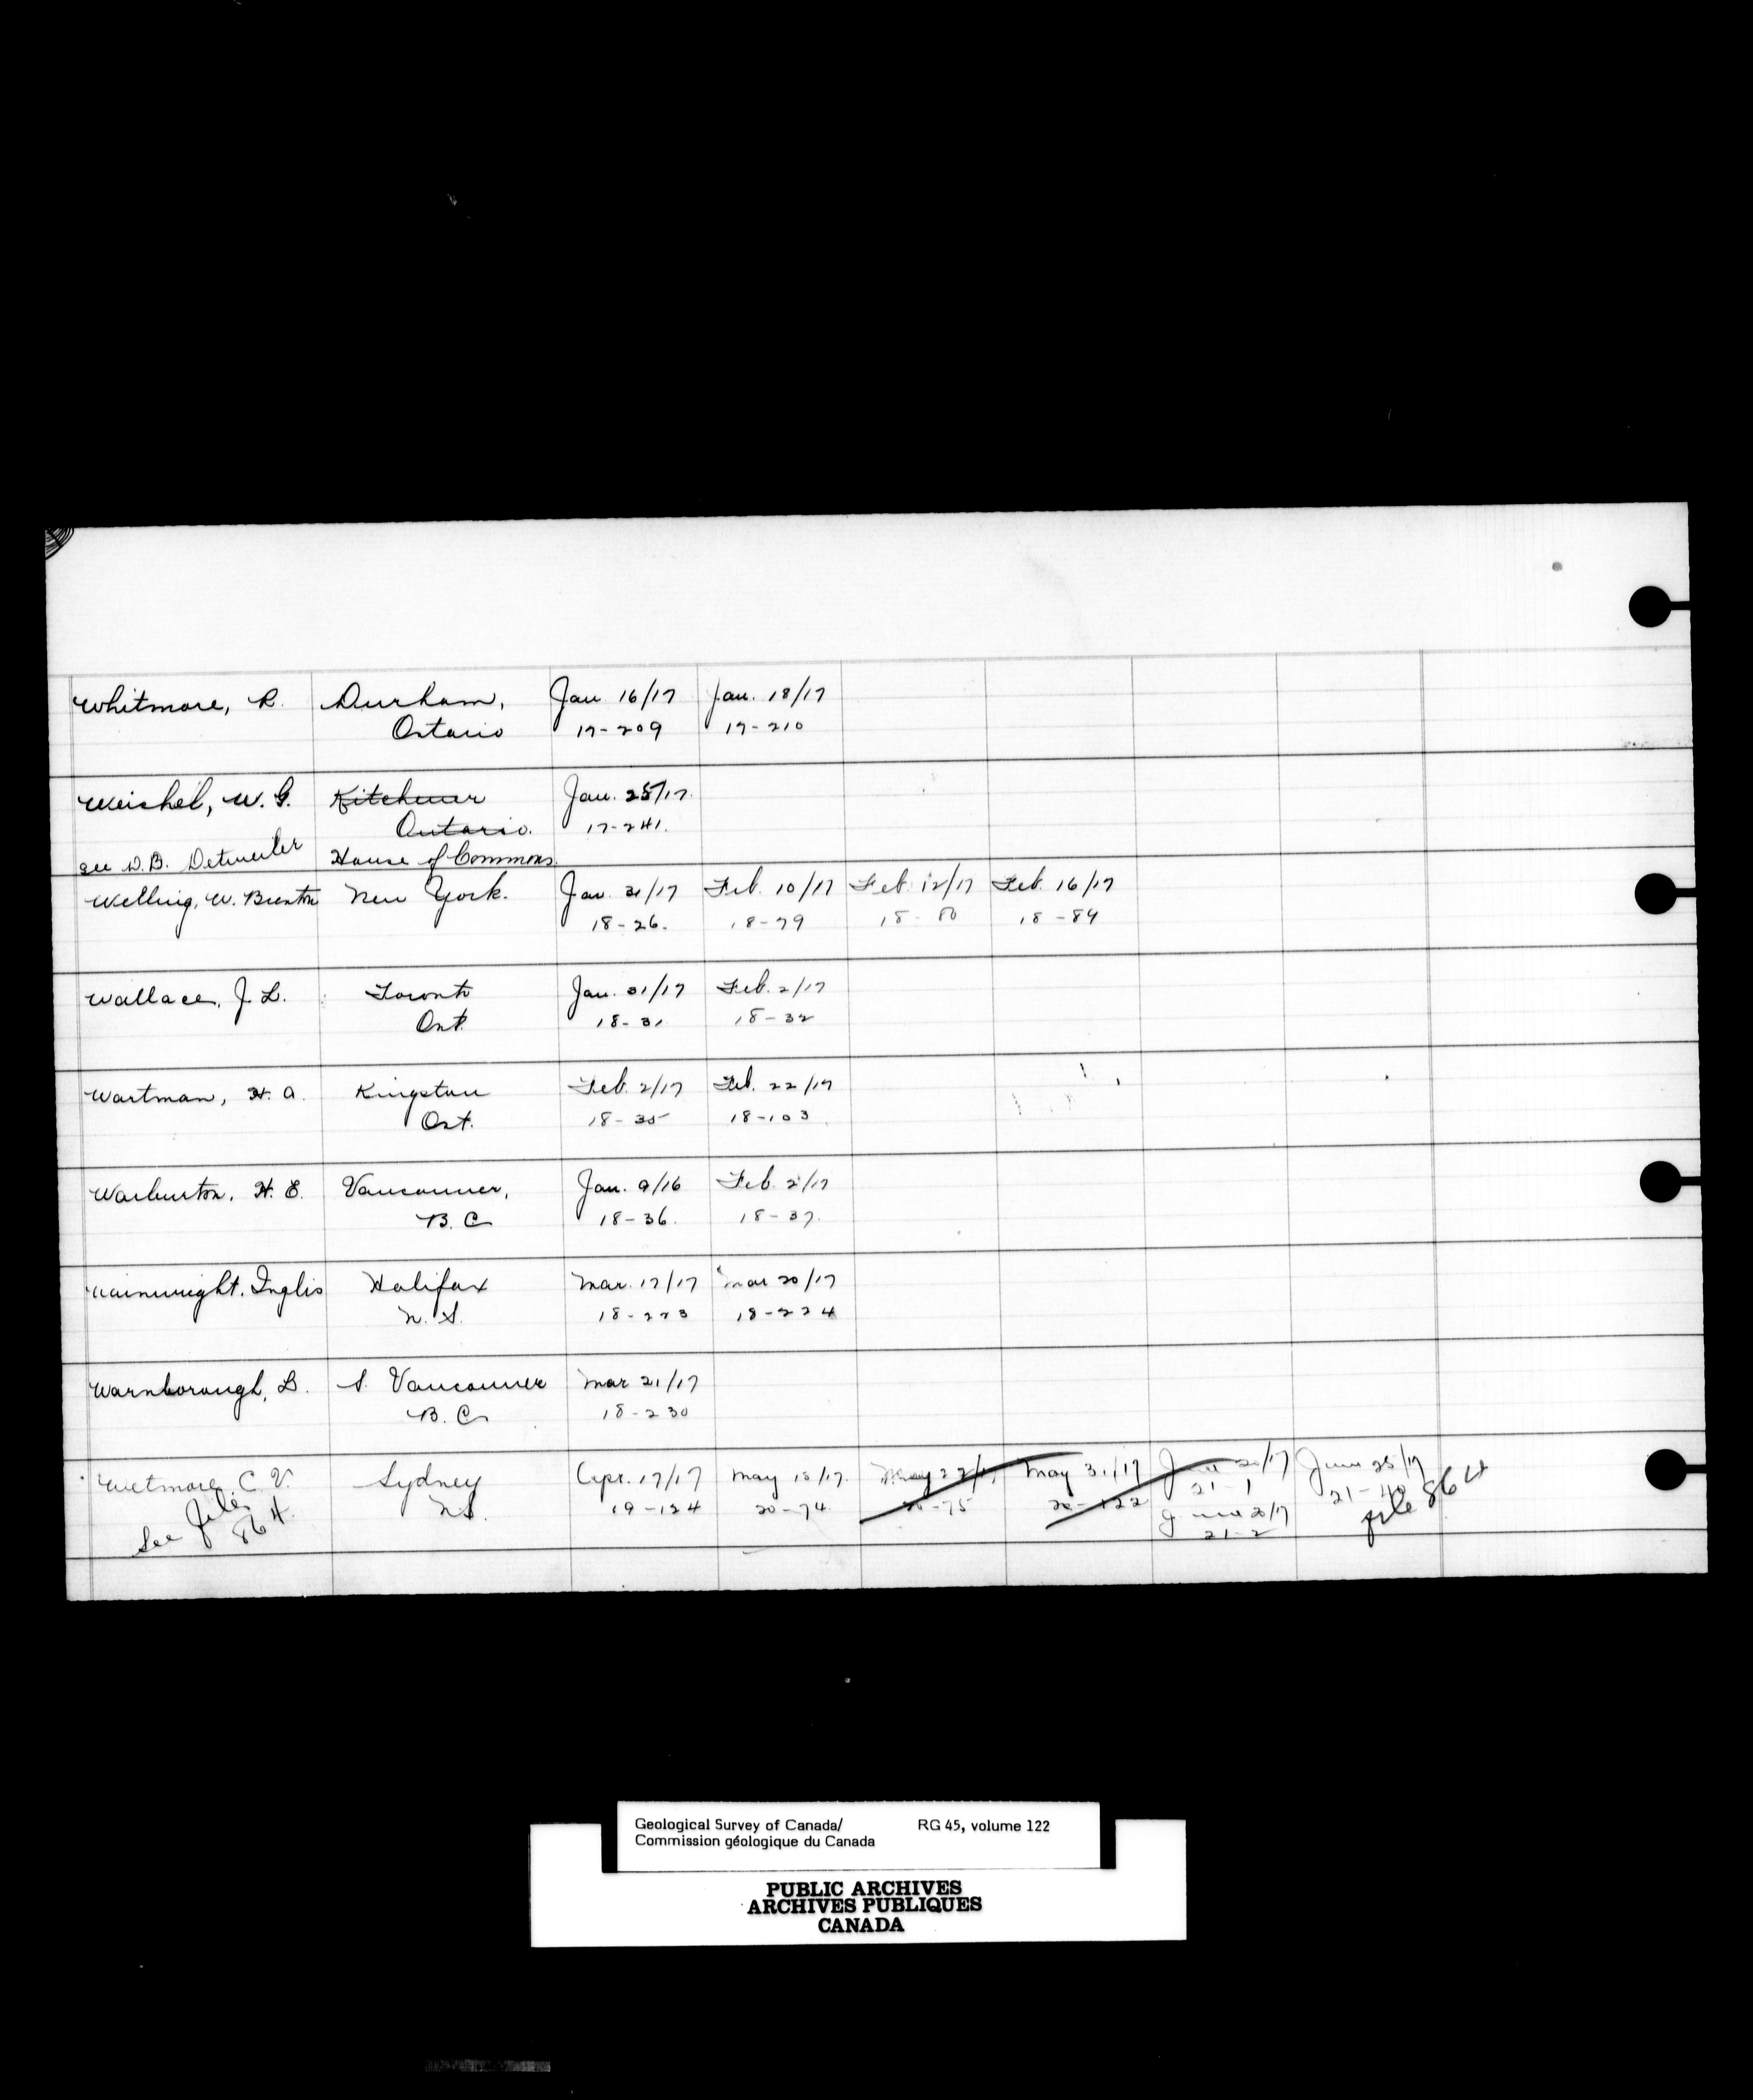 Whitmore, R. Durham, Jan. 16/17 Jan. 18/17
Ontario 17-209 17-210
Weichel, W. G. Kitchener Jan. 25/17
Ontario. 17-241.
see D.B. Detweiler House of Commons.
Welling, W. Brenton New York. Jan. 31/17 Feb. 10/17 Feb. 12/17 Feb. 16/17
18-26. 18-79 18-80 18-84
Wallace, J. L. Toronto Jan. 31/17 Feb. 2/17
Ont. 18-31 18-32
Wartman, H. A. Kingston Feb. 2/17 Feb. 22/17
Ont. 18-35 18-103
Warburton, H. E. Vancouver, Jan. 9/16 Feb. 2/17
B. C 18-36. 18-37.
Wainwright, Inglis Halifax Mar. 17/17 Mar 20/17
N. S. 18-223 18-224
Warnborough, L. S. Vancouver Mar 21/17
B. C. 18-230
Wetmore, C. V. Sydney Apr. 17/17 May 15/17. May 22/17 May 31/17 June 20/17 June 25/17
See file 864. N.S. 19-124 20-74. 20-75 20-122 21-1 21-40
June 20/17 file 864
21-2
Geological Survey of Canada/ RG 45, volume 122
Commission géologique du Canada
PUBLIC ARCHIVES
ARCHIVES PUBLIQUES
CANADA